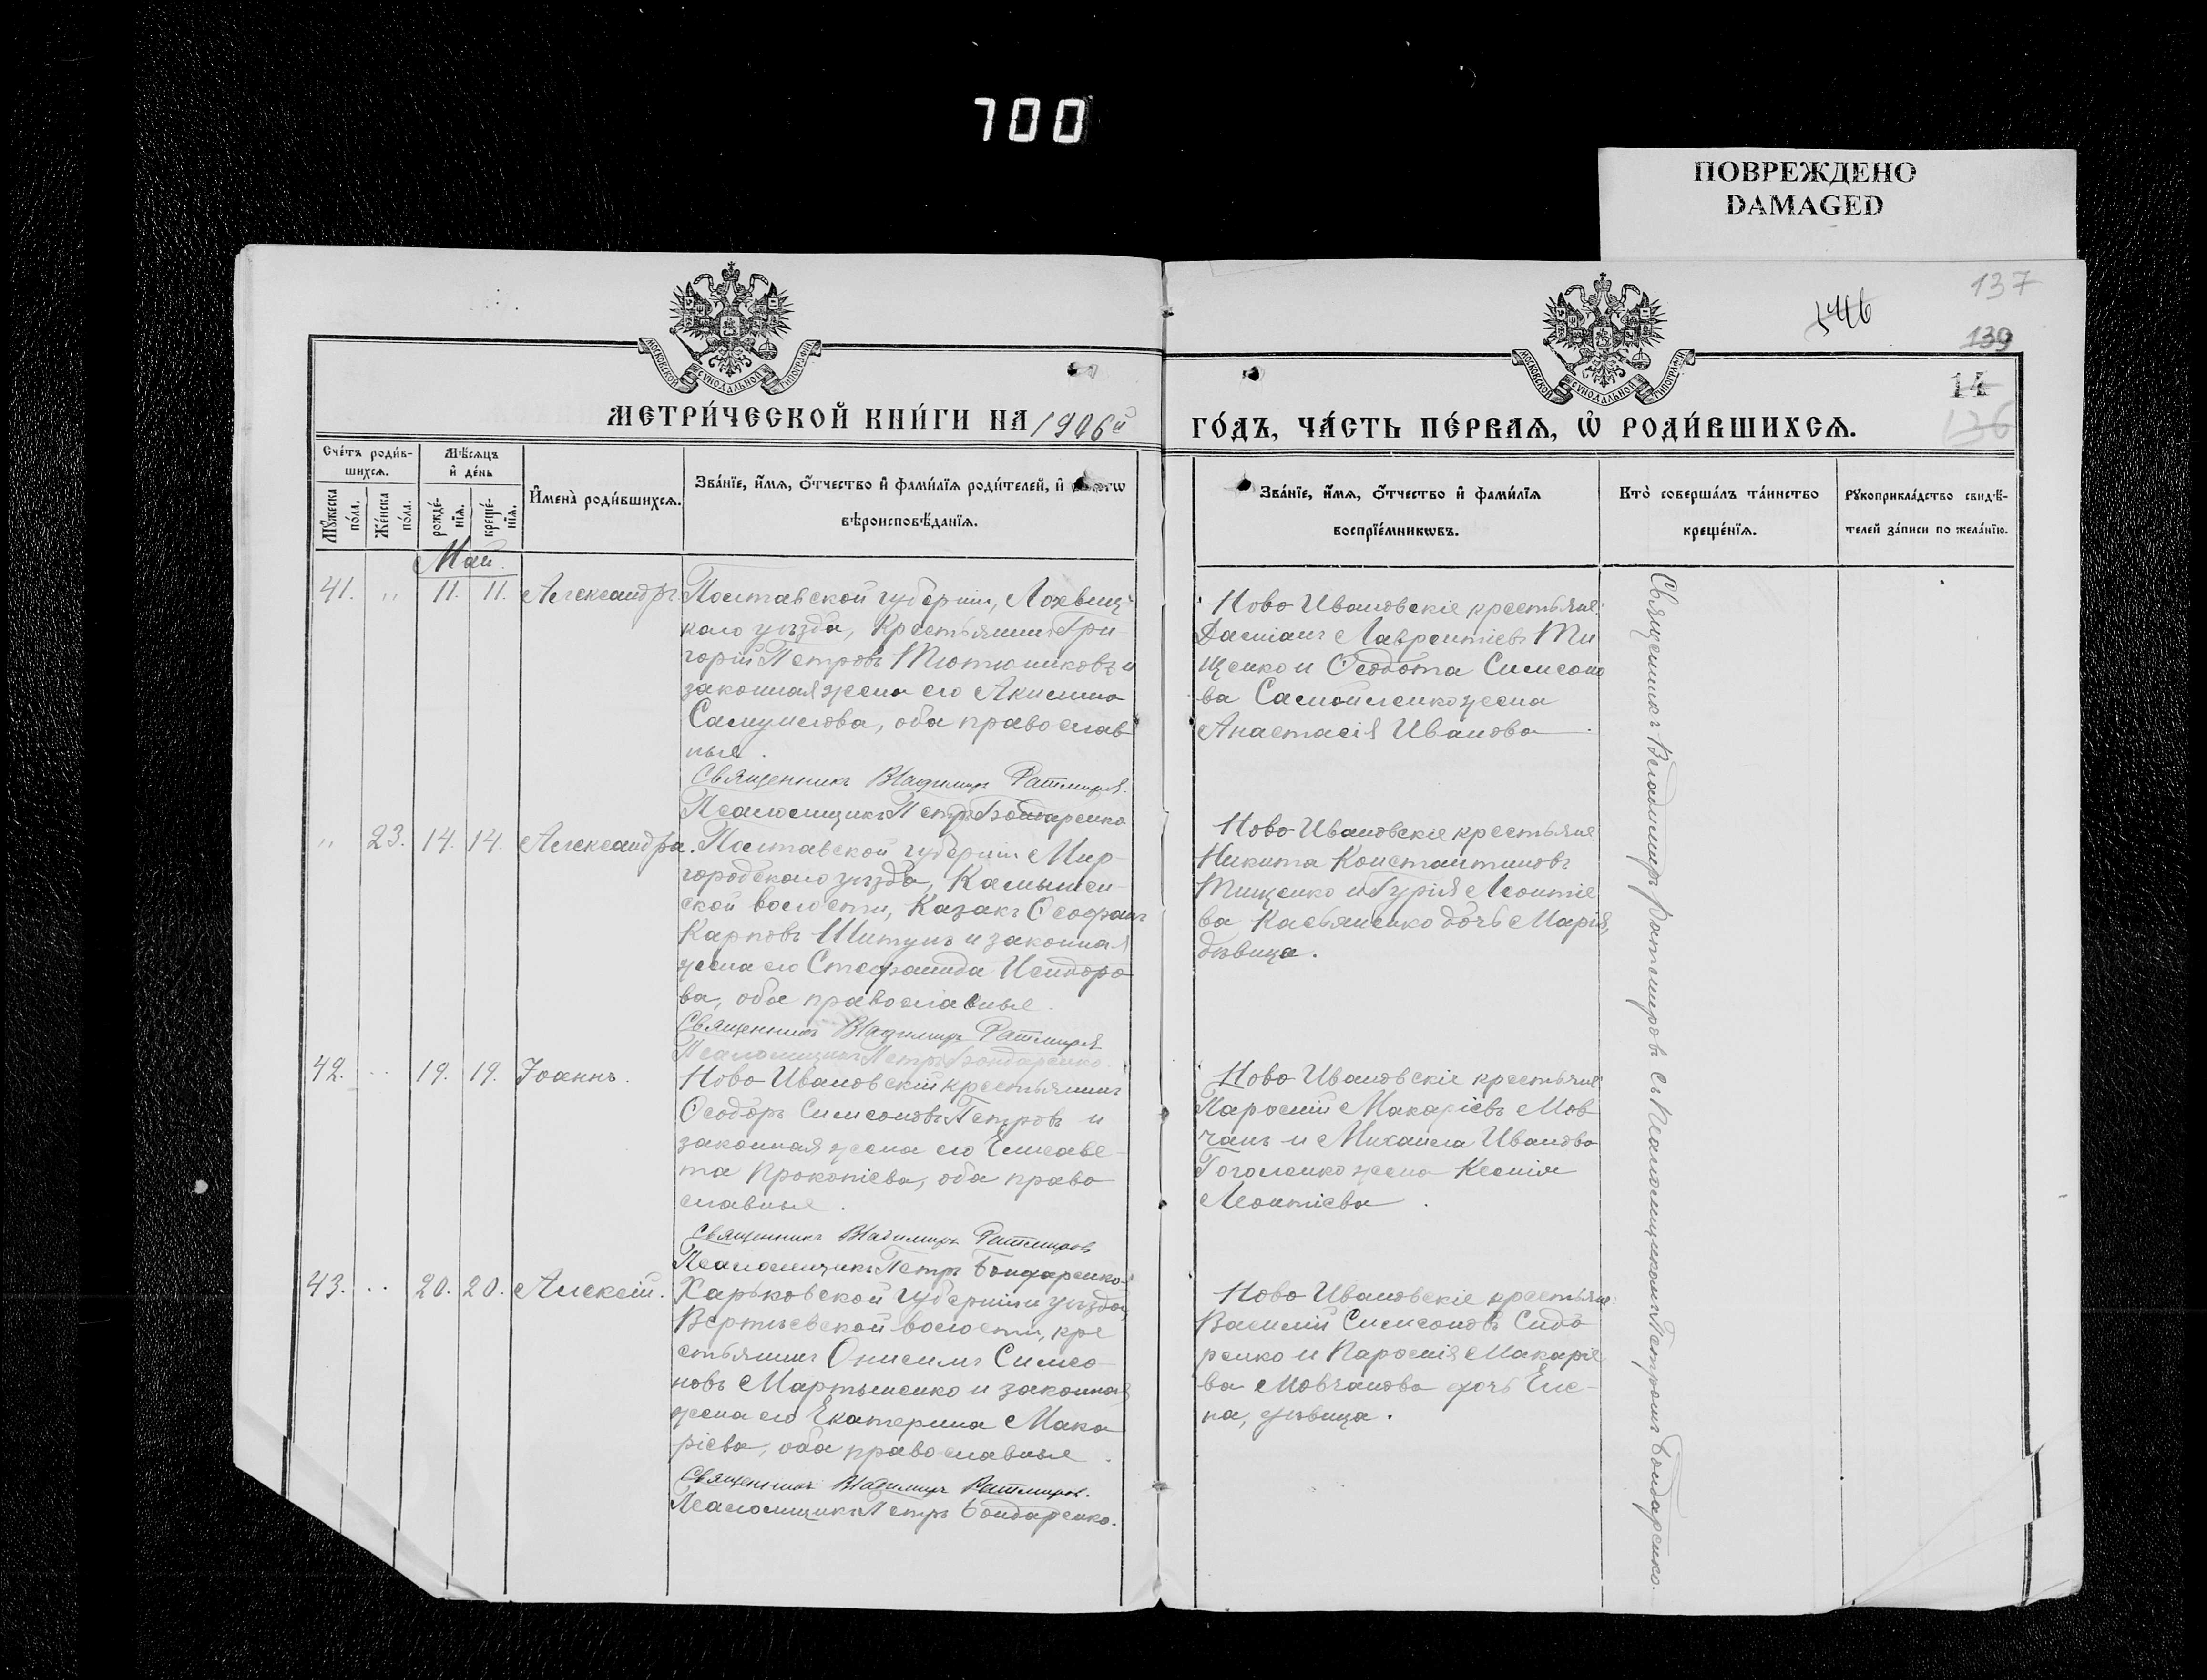 700
ПОВРЕЖДЕНО
DAMAGED
137
139
14
136
МОСКОВСКОЙ СУНОДАЛЬНОЙ ТИПОГРАФІИ
МОСКОВСКОЙ СУНОДАЛЬНОЙ ТИПОГРАФІИ
МЕТРИ́ЧЕСКОЙ КНИ́ГИ НА 1906й
ГО́ДЪ, ЧА́СТЬ ПЕ́РВАѦ, Ѡ҆ РОДИ́ВШИХСѦ.
Сче́тъ роди́в-
шихсѧ.
Мꙋ́жеска
по́ла.
Же́нска
по́ла.
Мѣ́сѧцъ
и҆ де́нь
рожде́-
нїѧ.
креще́-
нїѧ.
И҆мена̀ роди́вшихсѧ.
Зва́нїе, и҆́мѧ, ѻ҆́тчество и҆ фами́лїѧ роди́телей, и҆
вѣроисповѣ́данїѧ.
Зва́нїе, и҆́мѧ, ѻ҆́тчество и҆ фами́лїѧ
воспрїе́мникѡвъ.
Кто̀ соверша́лъ та́инство
креще́нїѧ.
Рꙋкоприкла́дство свидѣ́-
телей за́писи по жела́нїю.
Май.
41. " 11. 11. Александръ
Полтавской губерніи, Лохвиц-
каго уѣзда, крестьянинъ Гри-
горій Петровъ Тютюниковъ и
законная жена его Акилина
Самуилова, оба православ
ныя.
Священникъ Владимиръ Ратмировъ.
Псаломщикъ Петръ Бондаренко
Ново Ивановскіе крестьяне:
Даміанъ Лаврентіевъ Ти
щенко и Ѳеодота Симеоно
ва Самойленко жена
Анастасія Иванова.
" 23. 14. 14. Александра.
Полтавской губерніи Мир-
городскаго уѣзда, Камышен-
ской волости, Казакъ Ѳеофанъ
Карповъ Шитунъ и законная
жена его Стефанида Исидоро
ва, оба православныя.
Священникъ Владимиръ Ратмировъ
Псаломщикъ Петръ Бондаренко.
Ново Ивановскіе крестьяне
Никита Константиновъ
Тищенко и Гурія Леонтіе
ва Касьяненко дочь Марія,
дѣвица.
42. " 19. 19. Іоаннъ.
Ново Ивановскій крестьянинъ
Ѳеодоръ Симеоновъ Петровъ и
законная жена его Елисаве-
та Прокопіева, оба право
славныя.
Священникъ Владимиръ Ратмировъ
Псаломщикъ Петръ Бондаренко
Ново Ивановскіе крестьяне
Парѳеній Макаріевъ Мов
чанъ и Михаила Иванова
Гоголенко жена Ксенія
Леонтіева.
43. " 20. 20. Алексій.
Харьковской губерніи и уѣзда,
Вертѣевской волости, кре
стьянинъ Онисимъ Симео-
новъ Мартыненко и законная
жена его Екатерина Мака
ріева, оба православныя.
Священникъ Владимиръ Ратмировъ.
Псаломщикъ Петръ Бондаренко.
Ново Ивановскіе крестьяне:
Василій Симеоновъ Сидо
ренко и Парѳенія Макаріе
ва Мовчанова дочь Еле-
на, дѣвица.
Священникъ Владимиръ Ратмировъ съ Псаломщикомъ Петромъ Бондаренко.